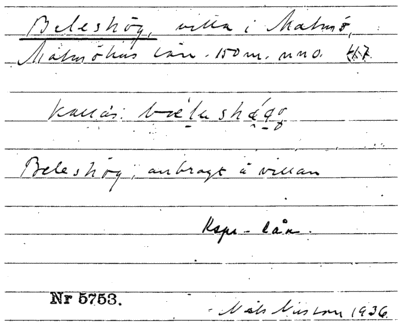 Beleshög, villa i Malmö,
Malmöhus län. 150 m. n n o.
Kallas: biela shög
Beleshög, anbragt å villan
Kspr. lån.
Nr 5753.
Nils Nilsson 1936